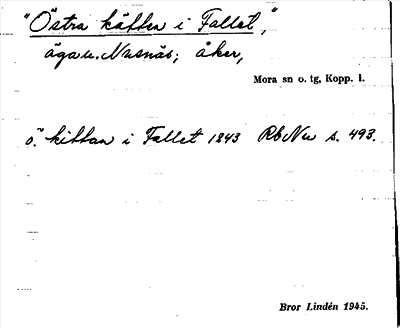 "Östra kätten i Fallet,"
äga u. Nusnäs; åker,
Mora sn o. tg, Kopp. l.
ö. kittan i Fallet 1843 RbNu s. 493.
Bror Lindén 1945.